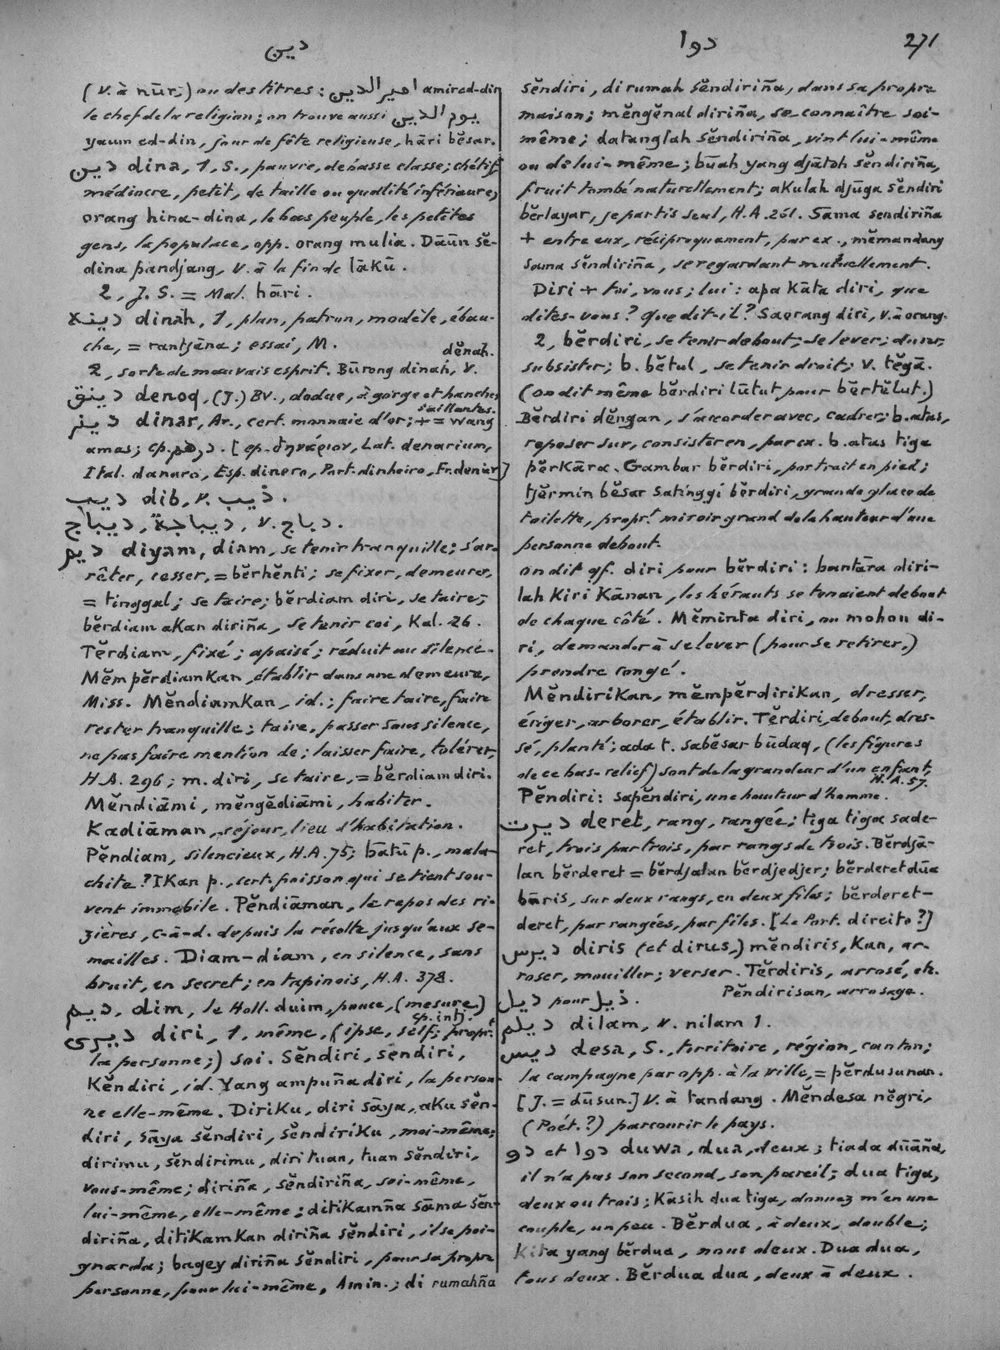 دين
دوا
271
(v. à nūr;) ou des titres: امير الدين amired-din
le chef de la religion; on trouve aussi يوم الدين
yaum ed-din, jour de fête religieuse, hāri bĕsar.
دين dina, 1, S., pauvre, de basse classe; chétif,
médiocre, petit, de taille ou qualité inférieure;
orang hina-dina, le bas peuple, les petites
gens, la populace, opp. orang mulia. Dāūn sĕ-
dina pandjang, v. à la fin de lākū.
2, J. S. = Mal. hāri.
دينه dinah, 1, plan, patron, modèle, ébau-
che, = rantjāna; essai, M.
2, sorte de mauvais esprit. Būrong dinah, v. dĕnah.
دينق denoq, (J.) BV., dodue, à gorge et hanches saillantes.
دينر dinar, Ar., cert. monnaie d'or; + = wang
amas; cp. درهم. [cp. δηνάριον, Lat. denarium,
Ital. danaro, Esp. dinero, Port. dinheiro, Fr. denier]
ديب dib, v. ذيب.
ديباج, ديباجة, v. دباج.
ديم diyam, diam, se tenir tranquille; s'ar-
rêter, cesser, = bĕrhĕnti; se fixer, demeurer,
= tinggal; se taire; bĕrdiam diri, se taire;
bĕrdiam akan diriña, se tenir coi, Kal. 26.
Tĕrdiam, fixé; apaisé; réduit au silence.
Mĕmpĕrdiamkan, établir dans une demeure,
Miss. Mĕndiamkan, id.; faire taire, faire
rester tranquille; taire, passer sous silence,
ne pas faire mention de; laisser faire, tolérer,
H.A. 296; m. diri, se taire, = bĕrdiam diri.
Mĕndiāmi, mĕngĕdiāmi, habiter.
Kadiāman, séjour, lieu d'habitation.
Pĕndiam, silencieux, H.A. 75; bātū p., mala-
chite? Ikan p., cert. poisson qui se tient sou-
vent immobile. Pĕndiāman, le repos des ri-
zières, c-à-d. depuis la récolte jusqu'aux se-
mailles. Diam-diam, en silence, sans
bruit, en secret; en tapinois, H.A. 378.
ديم, dim, le Holl. duim, pouce, (mesure)
ديرى diri, 1, même, (ipse, self; propr.t cp. intj.
la personne;) soi. Sĕndiri, sendiri,
Kĕndiri, id. Yang ampuña diri, la person-
ne elle-même. Diriku, diri sāya, aku sĕn-
diri, sāya sĕndiri, sĕndiriku, moi-même;
dirimu, sĕndirimu, diri tuan, tuan sĕndiri,
vous-même; diriña, sĕndiriña, soi-même,
lui-même, elle-même; ditikamña sāma sĕn-
diriña, ditikamkan diriña sĕndiri, il se poi-
gnarda; bagey diriña sĕndiri, pour sa propre
personne, pour lui-même, Amin.; di rumahña
sĕndiri, di rumah sĕndiriña, dans sa propre
maison; mĕngĕnal diriña, se connaître soi-
même; datanglah sĕndiriña, vint lui-même
ou de lui-même; būah yang djātoh sĕndiriña,
fruit tombé naturellement; akulah djūga sĕndiri
bĕrlayar, je partis seul, H.A. 261. Sāma sendiriña
+ entre eux, réciproquement, par ex., mĕmandang
sama sĕndiriña, se regardant mutuellement.
Diri + toi, vous; lui: apa kāta diri, que
dites-vous? que dit-il? Saorang diri, v. à orang.
2, bĕrdiri, se tenir debout; se lever; durer,
subsister; b. bĕtul, se tenir droit; v. tĕgā.
(On dit même bĕrdiri lūtut pour bĕrtĕlut.)
Bĕrdiri dĕngan, s'accorder avec, cadrer; b. atas,
reposer sur, consister en, par ex. b. atas tiga
pĕrkāra. Gambar bĕrdiri, portrait en pied;
tjĕrmin bĕsar satinggi bĕrdiri, grande glace de
toilette, propr.t miroir grand de la hauteur d'une
personne debout.
On dit qf. diri pour bĕrdiri: bantāra diri-
lah kiri kānan, les hérauts se tenaient debout
de chaque côté. Mĕminta diri, ou mohon di-
ri, demander à se lever (pour se retirer,)
prendre congé.
Mĕndirikan, mĕmpĕrdirikan, dresser,
ériger, arborer, établir. Tĕrdiri, debout, dres-
sé, planté; ada t. sabĕsar būdaq, (les figures
de ce bas-relief) sont de la grandeur d'un enfant, H.A. 57.
Pĕndiri: sapĕndiri, une hauteur d'homme.
ديرت deret, rang, rangée; tiga tiga sade-
ret, trois par trois, par rangs de trois. Bĕrdjā-
lan bĕrderet = bĕrdjalan bĕrdjedjer; bĕrderet dūa
bāris, sur deux rangs, en deux files; bĕrderet-
deret, par rangées, par files. [Le Port. direito?]
ديرس diris (et dirus,) mĕndiris, kan, ar-
roser, mouiller; verser. Tĕrdiris, arrosé, etc.
Pĕndirisan, arrosage.
ديل pour ذيل.
ديلم dilam, v. nilam 1.
ديس desa, S., territoire, région, canton;
la campagne par opp. à la ville, = pĕrdusunan.
[J. = dūsun.] V. à tandang. Mĕndesa nĕgri,
(Poét.?) parcourir le pays.
دو et دوا duwa, dua, deux; tiada dūāña,
il n'a pas son second, son pareil; dua tiga,
deux ou trois; kāsih dua tiga, donnez m'en une
couple, un peu. Bĕrdua, à deux, double;
kita yang bĕrdua, nous deux. Dua dua,
tous deux. Bĕrdua dua, deux à deux.